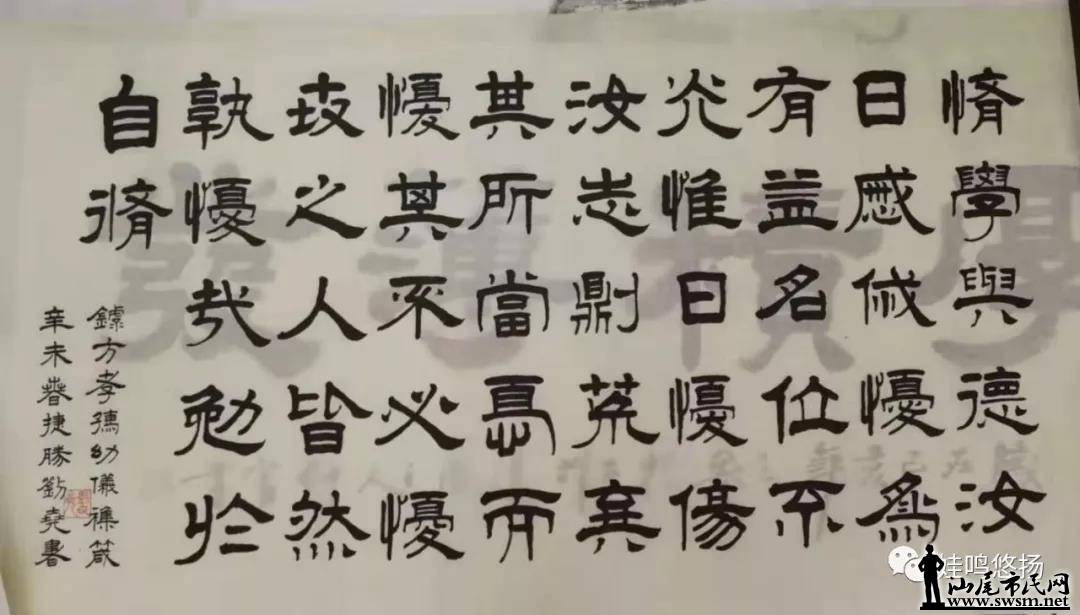 脩學與德汝
日慼慼憂為
有益名位不
光惟日憂傷
汝志則荒棄
其所當憂而
憂其不必憂
世之人皆然
孰憂哉勉於
自脩
錄方孝孺幼儀雜箴
辛未春捷勝堯書
蛙鸣悠扬
汕尾市民网
www.swsm.net